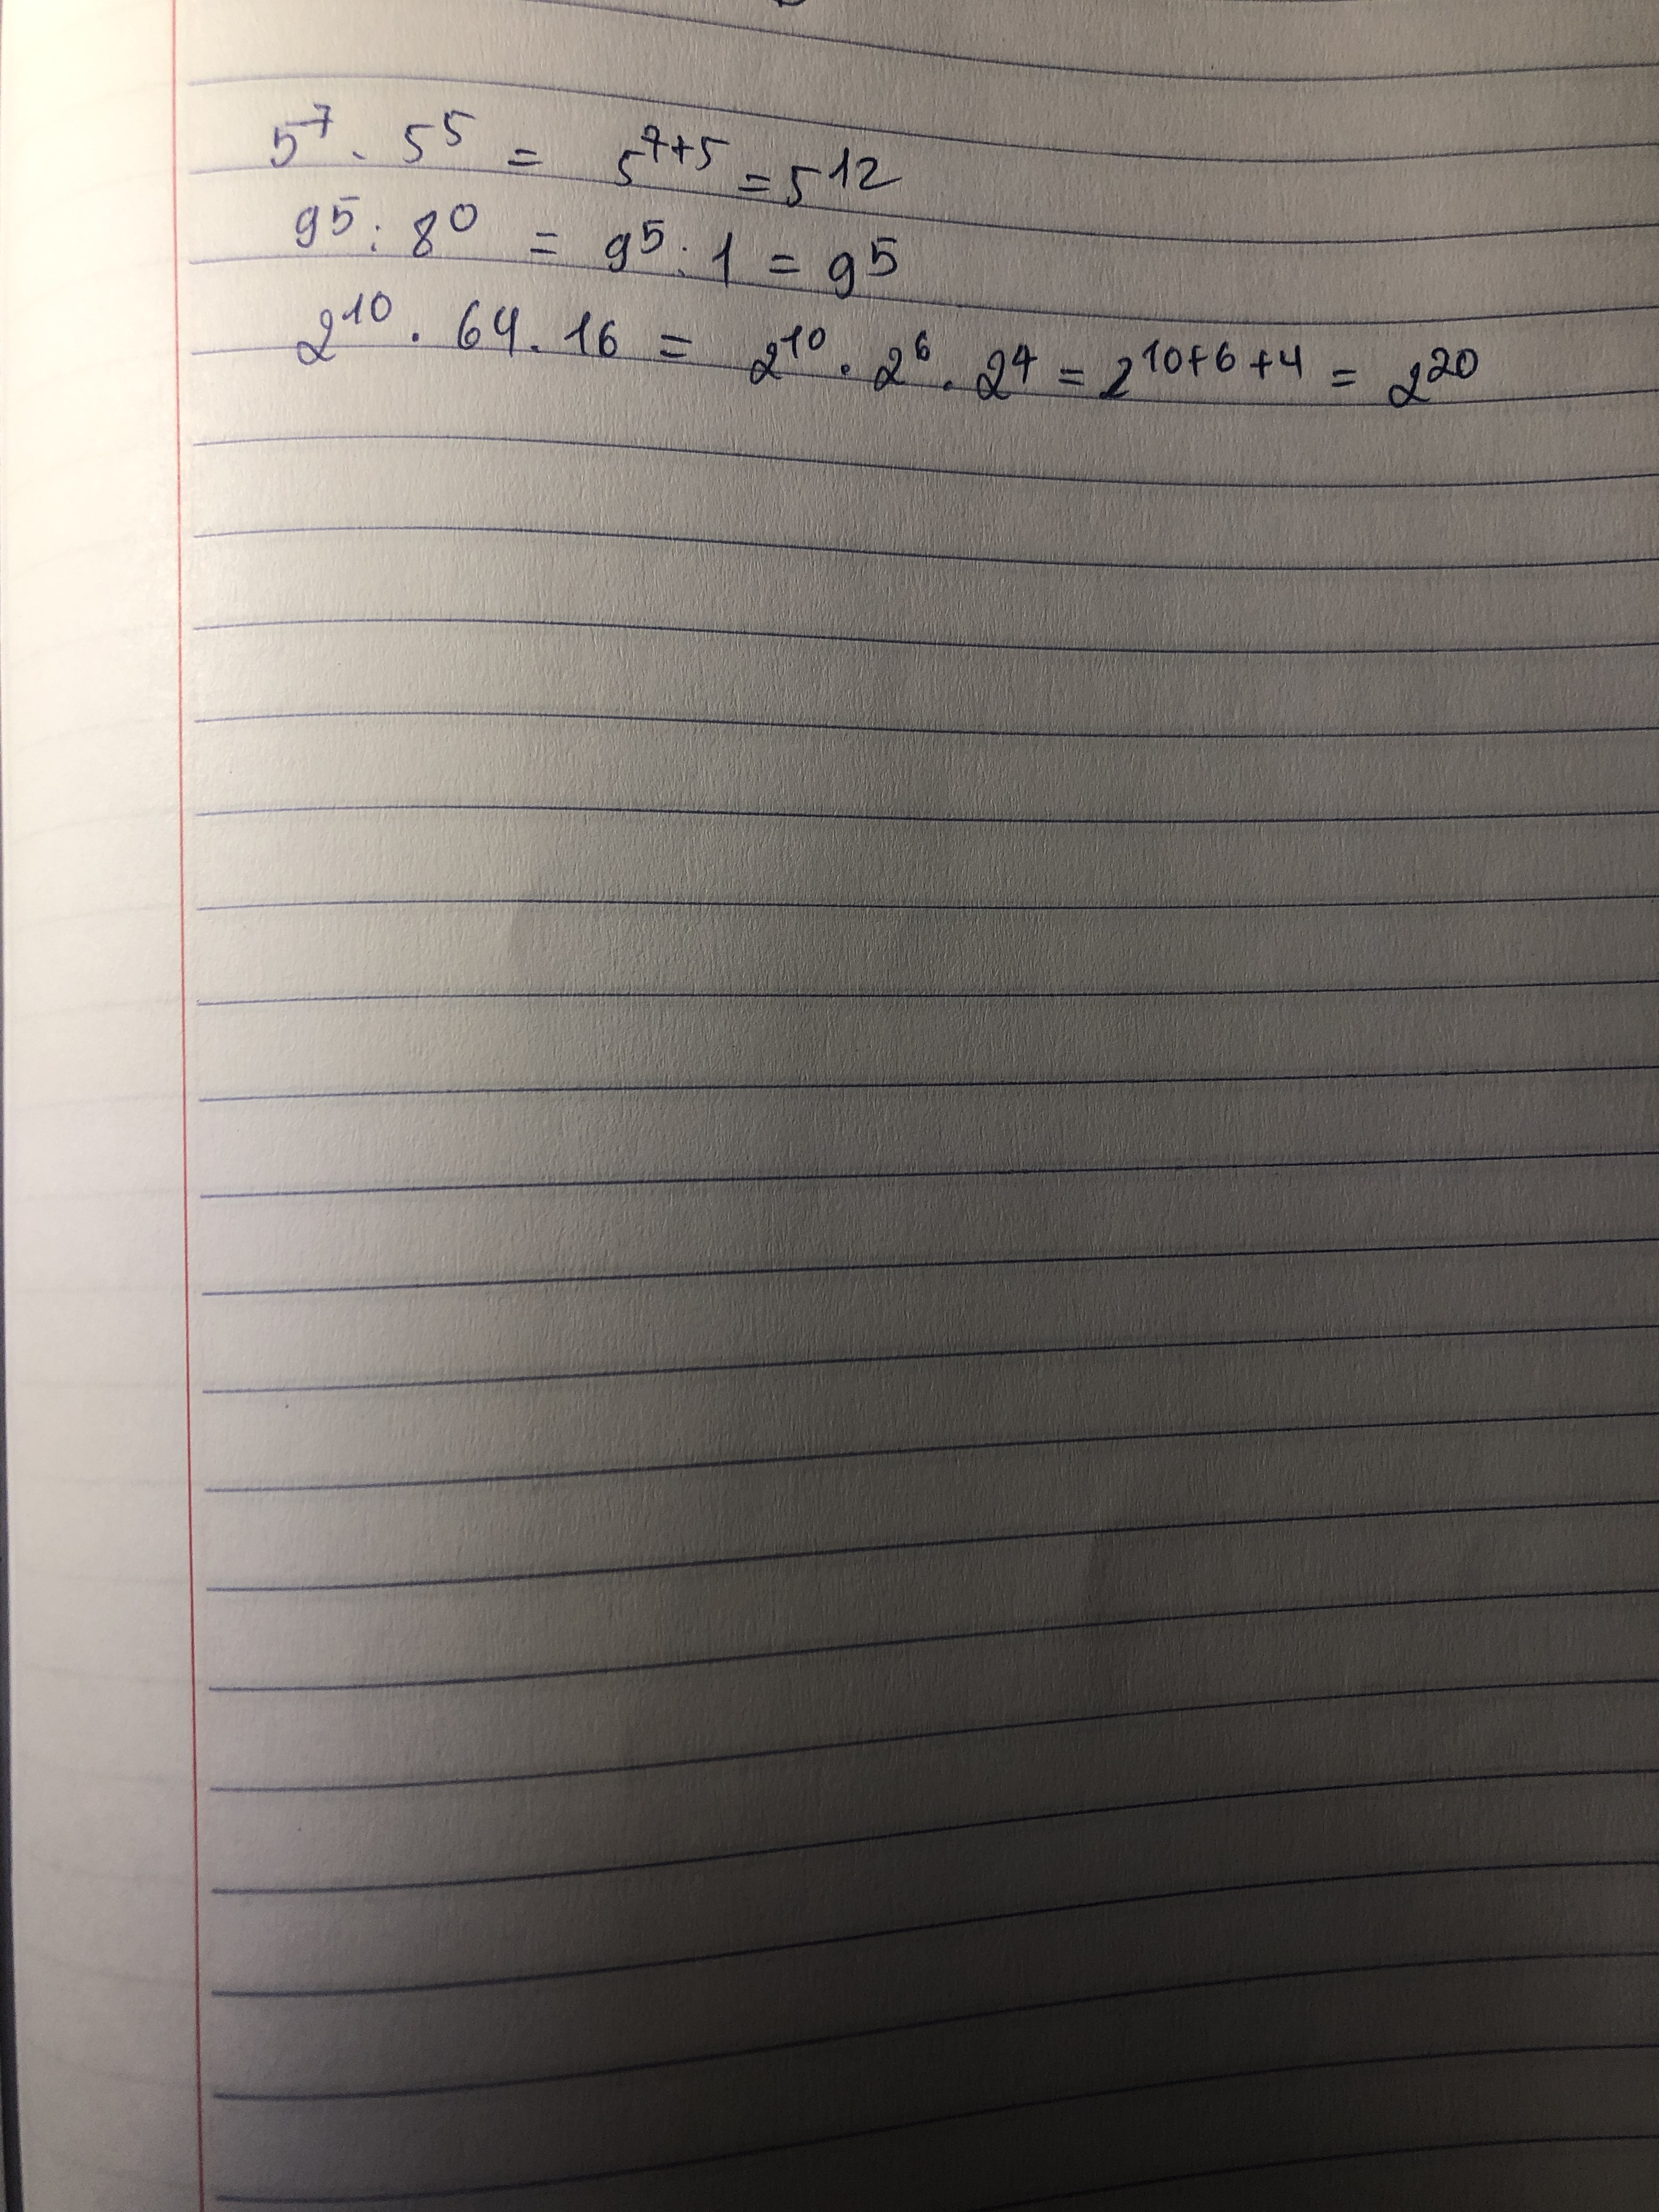 5⁷ . 5⁵ = 5⁷⁺⁵ = 5¹²
9⁵ : 8⁰ = 9⁵ : 1 = 9⁵
2¹⁰ . 64 . 16 = 2¹⁰ . 2⁶ . 2⁴ = 2¹⁰⁺⁶⁺⁴ = 2²⁰